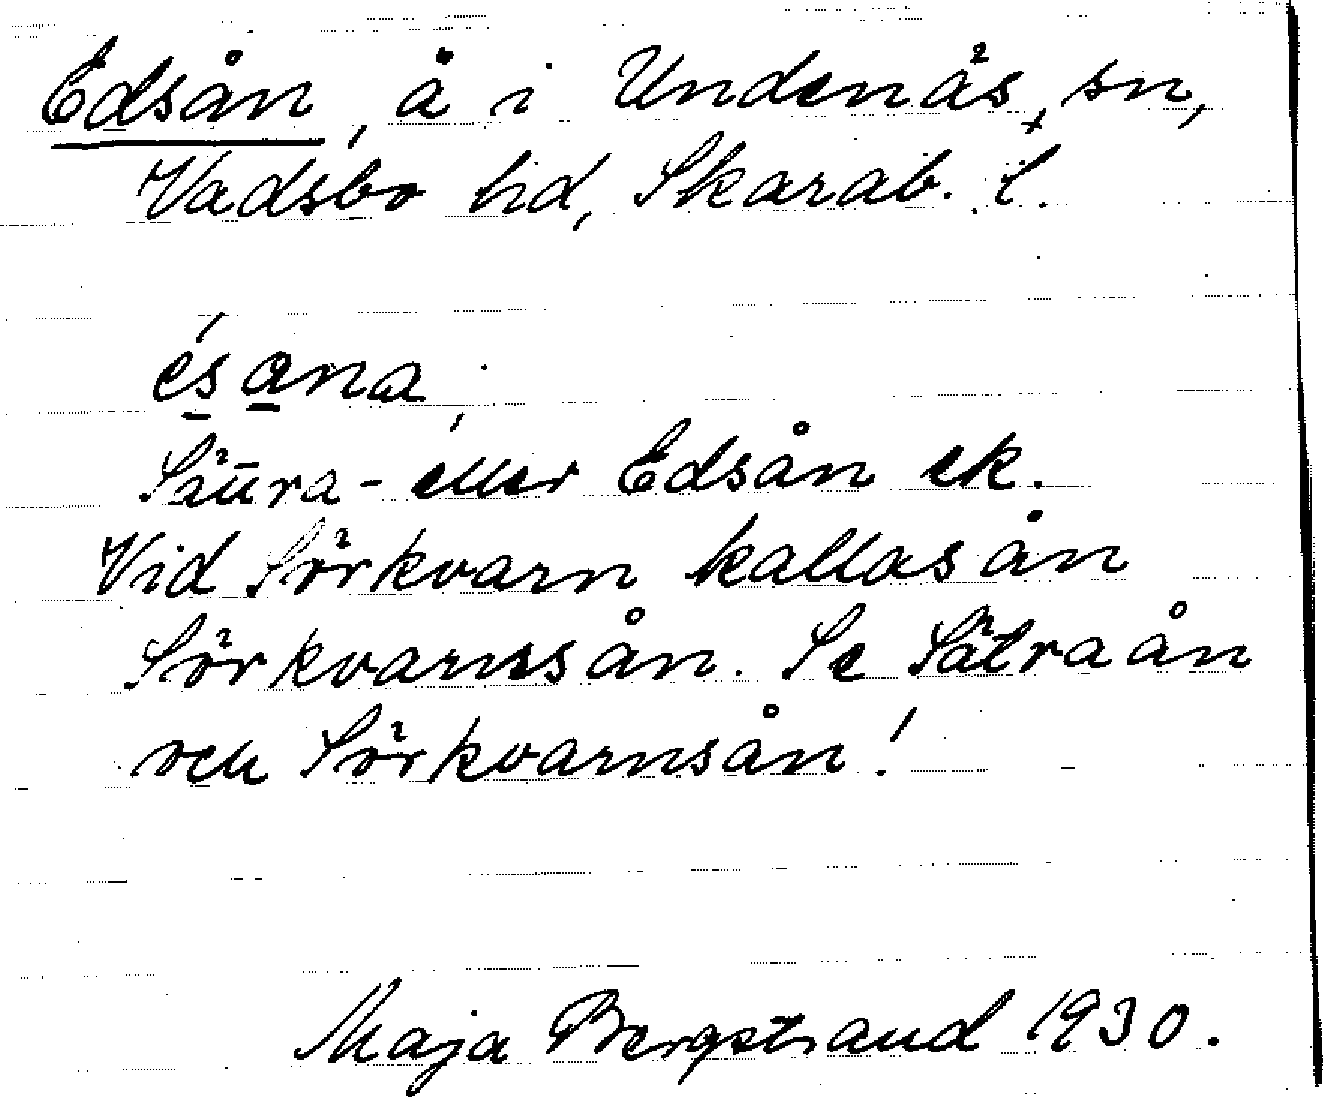 Edsån, å i Undenäs sn,
Vadsbo hd, Skarab. l.
ésana,
Sätra- eller Edsån ek.
Vid Sörkvarn kallas ån
Sörkvarnssån. Se Sätraån
och Sörkvarnsån!
Maja Bergstrand 1930.